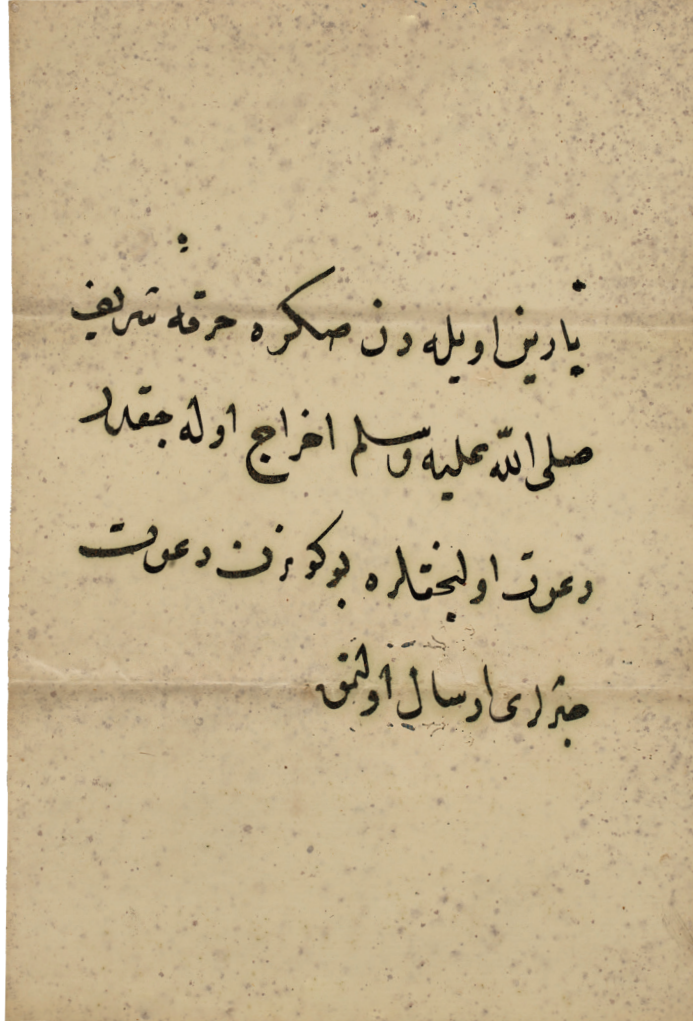 يارين اويله دن صكره خرقه شريف
صلى الله عليه وسلم اخراج اوله جقدر
دعوت اولنجقلره بوكوندن دعوت
خبرلرى ارسال اولنمق